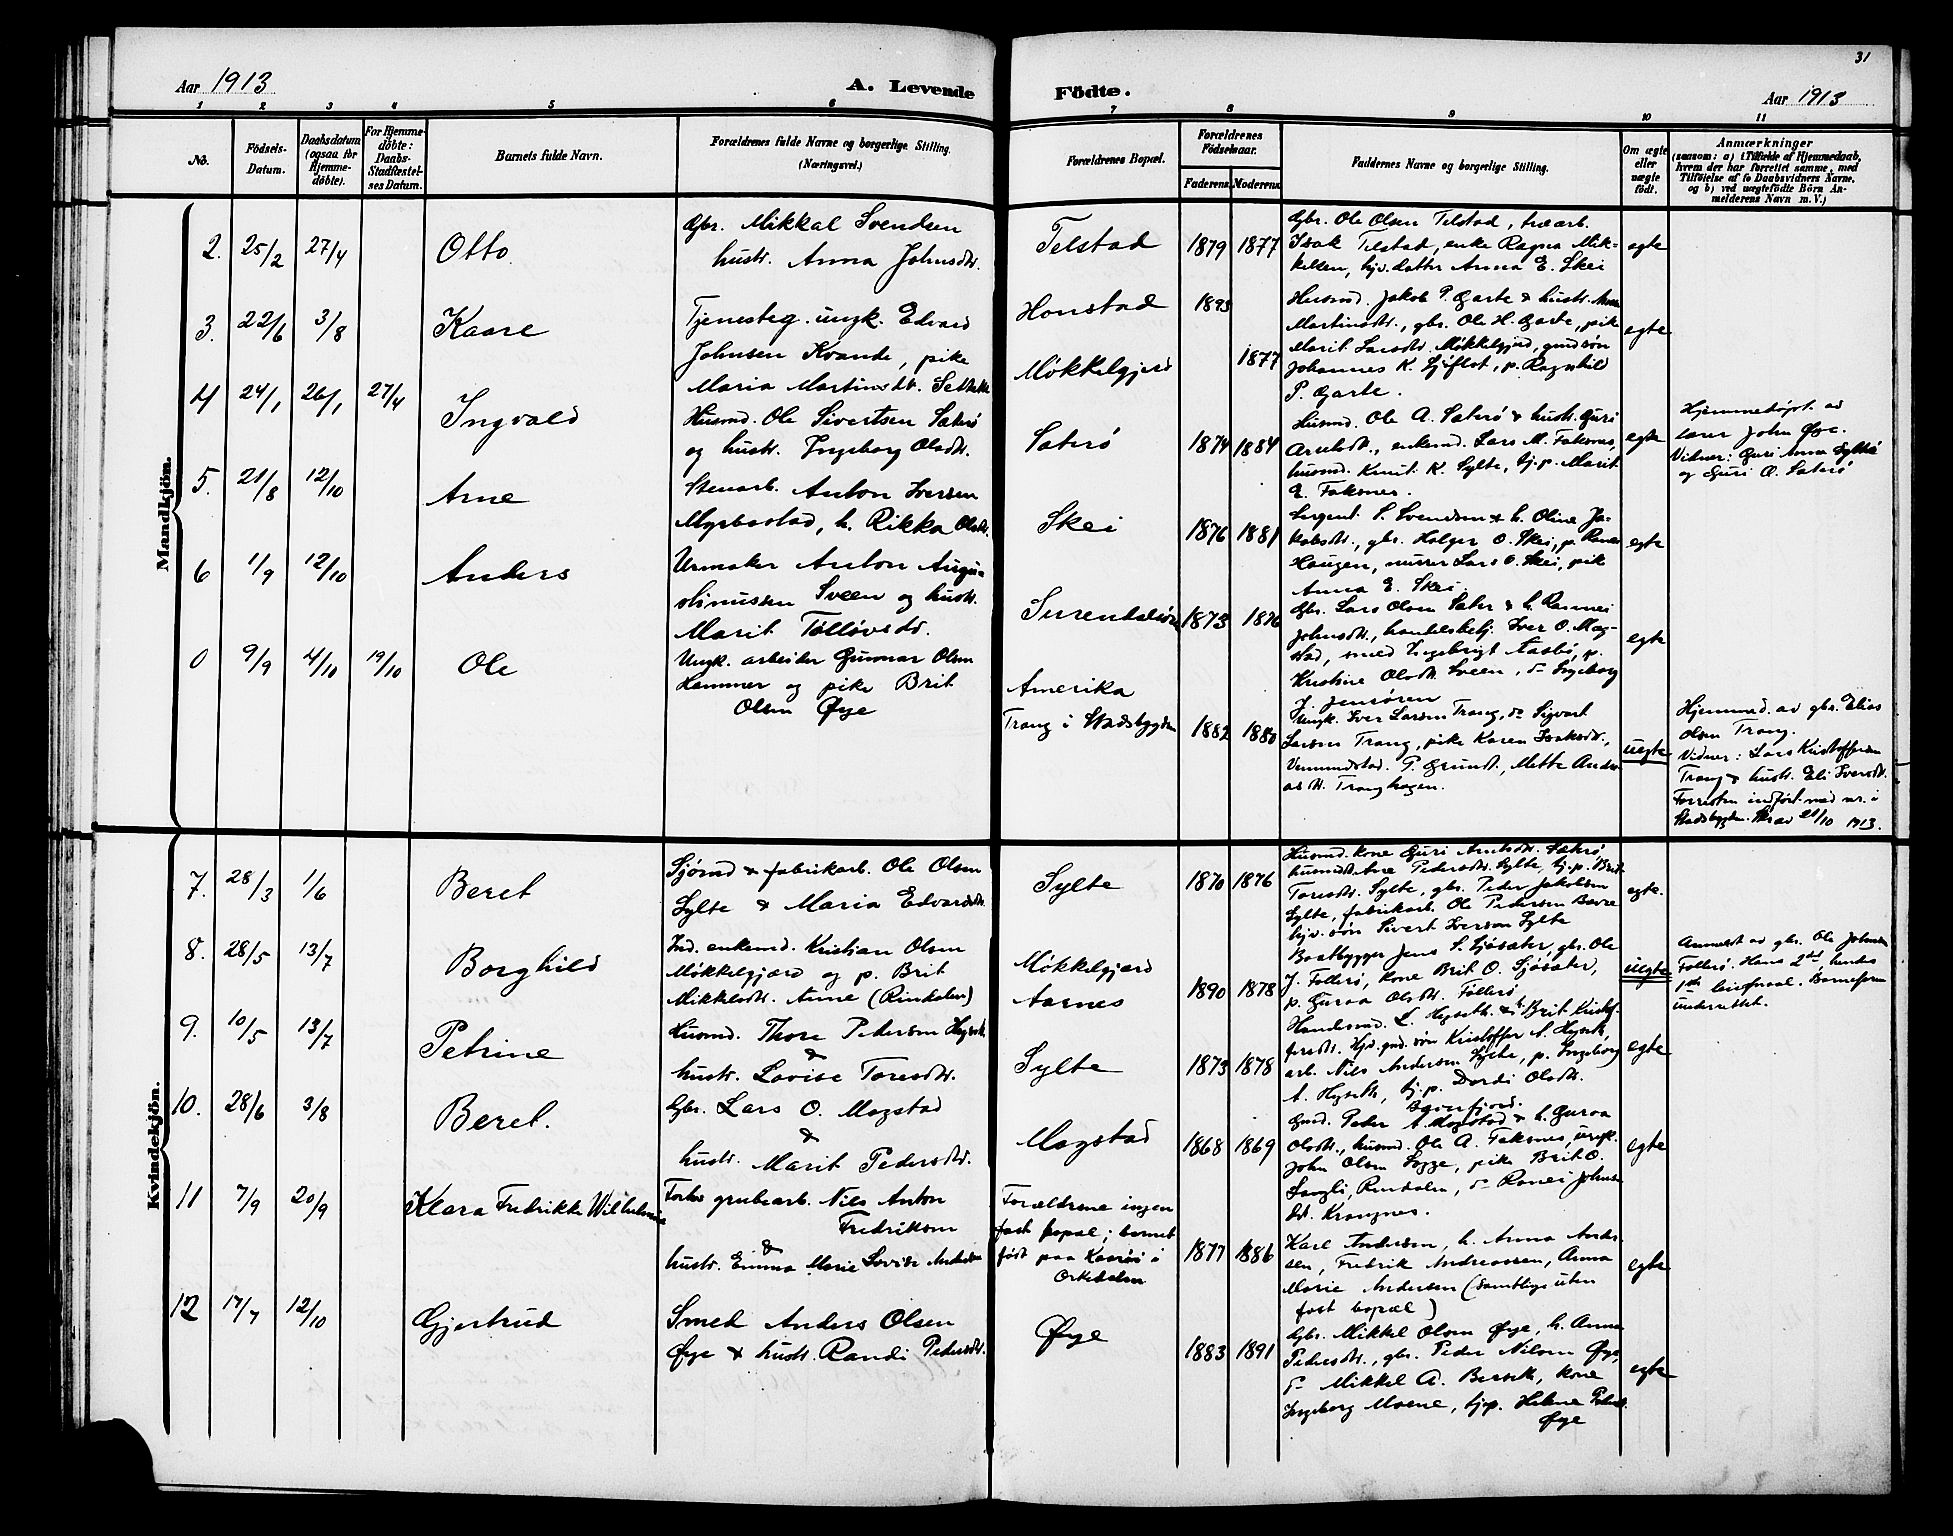 31
Aar 1913
A. Levende Födte.
Aar 1913
1 2 3 4 5 6 7 8 9 10 11
No.
Födsels-Datum.
Daabsdatum (ogsaa for Hjemme-døbte).
For Hjemme-døbte: Daabs-Stadfæstel-ses Datum.
Barnets fulde Navn.
Forældrenes fulde Navne og borgerlige Stilling. (Næringsvei.)
Forældrenes Bopæl.
Forældrenes Födselsaar.
Faderens. Moderens.
Faddernes Navne og borgerlige Stilling.
Om ægte eller uægte födt.
Anmærkninger
(saasom: a) i Tilfælde af Hjemmedaab, hvem der har forrettet samme, med Tilföielse af to Daabsvidners Navne, og b) ved uægtefödte Börn Anmelderens Navn m. V.)
Mandkjön.
2. 25/2 27/4
Otto
Gbr. Mikkal Svendsen
hustr. Anna Johnsdtr.
Telstad
1879 1877
Gbr. Ole Olsen Telstad, træarb.
Isak Telstad, enke Ragna Mik-
kelsen, hjv. datter Anna E. Skei
egte
3. 22/6 3/8
Kaare
Tjenesteg. ungk. Edvard
Johnsen Kvande, pike
Maria Martinsdtr.
Honstad
Møkkelgjerd
1893
1877
Husmd. Jakob P. Garte & hustr.
Martinsdtr., gbr. Ole H. Garte, pike
Marit Larsdtr. Møkkelgjerd, gmdsøn
Johannes K. Sjøflot, p. Ragnhild
P. Garte.
egte
4 24/1 26/1 27/4
Ingvald
Husmd. Ole Sivertsen Saterø
og hustr. Ingeborg Olsdtr.
Saterø
1874 1884
Husmd. Ole A. Saterø & hustr. Guri
Arntsdtr., enkemd. Lars M. Faksnes,
husmd. Knut K. Sylte, hj.p. Marit
E. Faksnes.
egte
Hjemmedøpt av
lærer John Øye.
Vidner: Guri Anna Sylte
og Guri O. Saterø
5. 21/8 12/10
Arne
Stenarb. Anton Iversen
Myrbostad, h. Rikka Olsdtr.
Skei
1876 1881
Sergent S. Svendsen & h. Oline Ja-
kobsdtr., gbr. Holger O. Skei, p.
Haugen, murer Lars O. Skei, pike
Anna E. Skei
egte
6 1/9 12/10
Anders
Urmaker Anton Augu-
stinusen Sveen og hustr.
Marit Tølløvsdtr.
Surendalsøra
1873 1876
Gbr. Lars Olsen Sæter & h. Rannei
Johnsdtr., handelsbetj. Iver O. Mog-
stad, smed Ingebrigt Aasbø, p.
Kristine Olsdtr. Sveen, do Ingeborg
J. Jensøren
egte
0 9/9 4/10 19/10
Ole
Ungk. arbeider Gunnar Olsen
Hammer og pike Brit
Olsen Øye
Amerika
Trang i Stadsbygden
1882 1880
Ungk. Iver Larsen Trang, do Sigvart
Larsen Trang, pike Karen Isaksdtr.,
Vemundstad. P. Grundt, Mette Andre-
asdtr. Tranghagen.
uegte
Hjemmed. av gbr. Elias
Olsen Trang.
Vidner: Lars Kristoffersen
Trang & hustr. Eli Iversdtr.
Forresten indført med nr. i
Stadsbygden. Skrev 21/10 1913.
Kvindekjön.
7. 28/3 1/6
Beret
Sjømd & fabrikarb. Ole Olsen
Sylte & Maria Edvardsdtr.
Sylte
1870 1876
Husmd.kone Guri Arntsdtr. Sæterø
Ane Pedersdtr. Sylte, hj.p. Brit
Toresdtr. Sylte, gbr. Peder Jakobsen
Sylte, fabrikarb. Ole Pedersen Bøvre
hjv. søn Sivert Iversen Sylte
egte.
8. 28/5 13/7
Borghild
Ind. enkemd. Kristian Olsen
Møkkelgjærd og p. Brit
Mikkelsdtr. Aune (Rindalen)
Møkkelgjerd
Aarnes
1890 1878
Baatbygger Jens S. Sjøsæter, gbr. Ole
J. Follerø, kone Brit O. Sjøsæter,
p. Guroa Olsdtr. Føllerø
uegte
Anmeldt av gbr. Ole Johnsen
Follerø. Hans 2det hendes
1ste leiermaal.
underrettet.
9. 10/5 13/7
Petrine
Husmd. Thore Pedersen
&
hustr. Lovise Toresdtr.
Sylte
1873 1878
Handesmd. L. Hyseth & h. Brit Kristof-
fersdtr. Hjv. gmd. søn Kristoffer A. Hyseth,
arb. Nils Andersen Sylte, p. Ingeborg
A. Hyseth, hj.p. Dordi Olsdtr.
Bøverfjord.
egte
10. 28/6 3/8
Beret.
Gbr. Lars O. Mogstad
&
hustr. Marit Pedersdtr.
Mogstad
1868 1869
Gmd. Peder A. Mogstad & h. Guroa
Olsdtr., husmd. Ole A. Faksnes, ungk.
John Olsen Sogge, pike Brit O.
Langli, Rindalen, do Ranei Johns-
dtr. Krangnes.
egte
11 7/9 20/9
Klara Fredrikke Wilhelmine
Forhv. grubearb. Nils Anton
Fredriksen
&
hustr. Emma Marie Lovise Andersen
Forældrene ingen
fast bopæl; barnet
født paa Kaarøi i
Orkedalen
1877 1886
Karl Andersen, h. Anna Ander-
sen, Fredrik Andreassen, Anna
Marie Andersen (samtlige uten
fast bopæl)
egte
12 17/7 12/10
Gjertrud
Smed Anders Olsen
Øye & hustr. Randi Pedersdtr.
Øye
1883 1891
Gbr. Mikkel Olsen Øye, h. Anna
Pedersdtr., gbr. Peder Nilsen Øye,
do Mikkel A. Bersæth, kone
Ingeborg Moene, hj.p. Helene
Øye
egte